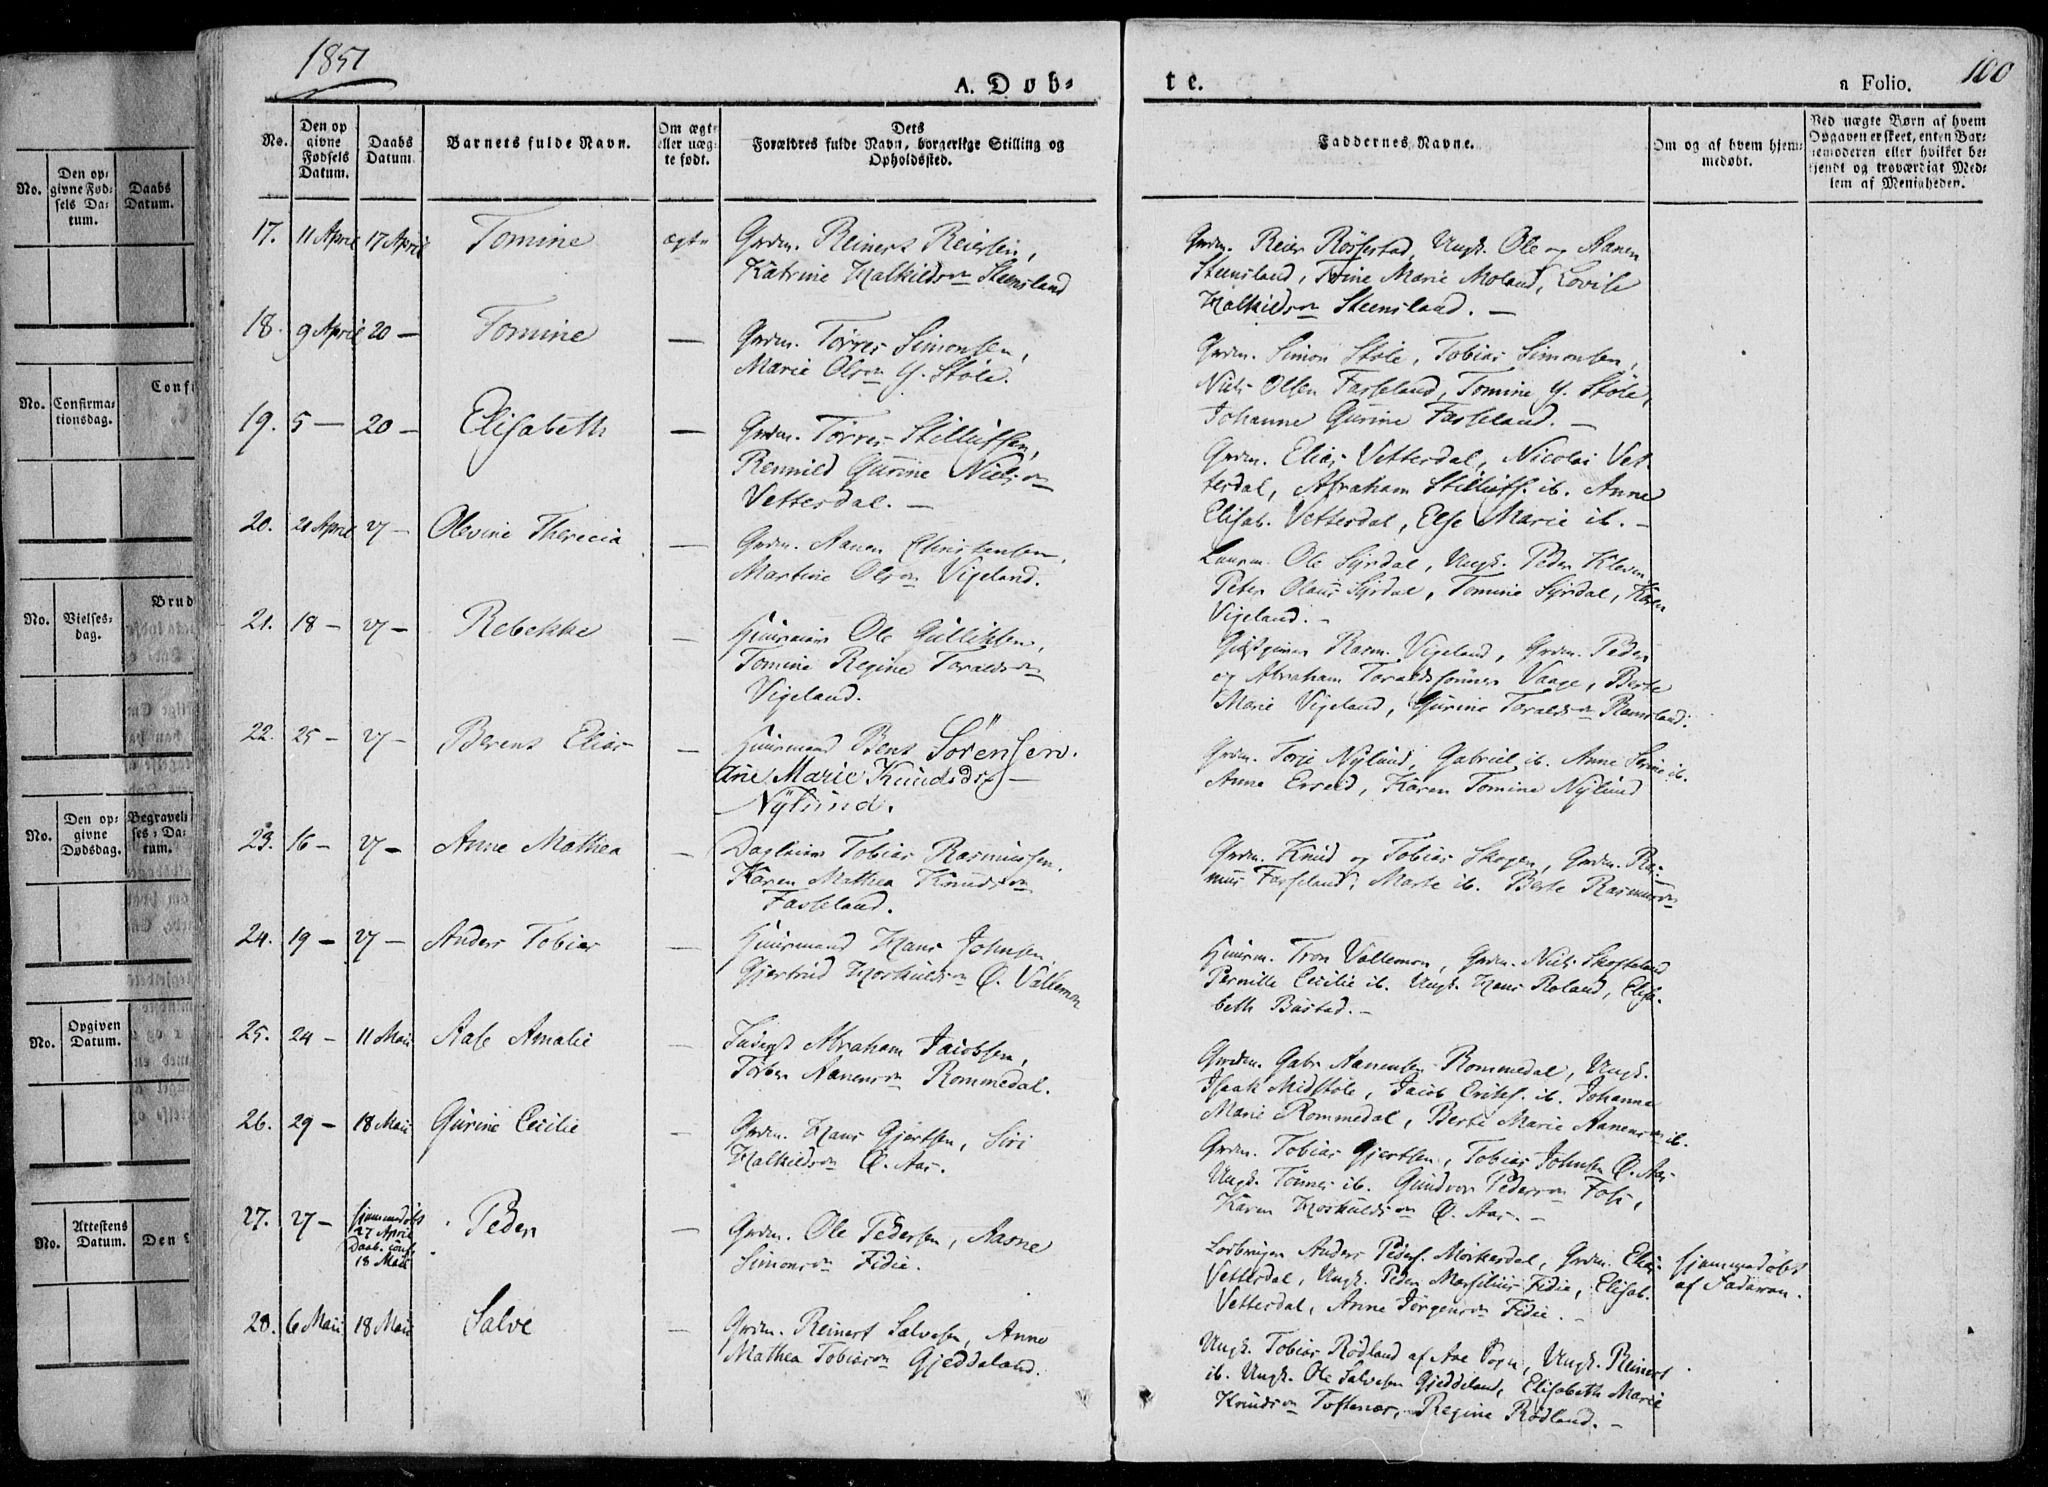 1851
A. Døb-
te.
a Folio.
100
No.
Den opgivne Fødsels Datum.
Daabs Datum.
Barnets fulde Navn.
Om ægte eller uægte født.
Dets Forældres fulde Navn, borgerlige Stilling og Opholdssted.
Faddernes Navne.
Om og af hvem hjemmedøbt.
Ved uægte Børn af hvem Opgaven er skeet, enten Barnemoderen eller hvilket bekjendt og troværdigt Medlem af Menigheden.
17. 11 April 17 April Tomine ægte Grdm. Reinert Reiersen,
Katrine Halkildsdn Steensland
Grdm. Reier Røssestad, Ungk. Ole og Aanen
Steensland, Trine Marie Moland, Lovise
Halkildsdn Steensland. —
18. 9 April 20 — Tomine — Grdm. Tørres Simonsen,
Marie Olsdn Y. Støle.
Grdm. Simon Støle, Tobias Simonsen,
Niels Olsen Fasseland, Tomine Y. Støle,
Johanne Gurine Fasseland. —
19. 5 — 20 — Elisabeth — Grdm. Tørres Stillufsen,
Rennild Gurine Nielsdn
Vetterdal. —
Grdm. Elias Vetterdal, Nicolai Vet-
terdal, Abraham Stillufs. ib. Anne
Elisab. Vetterdal, Else Marie ib. —
20. 20 April 27 — Olevine Therecia — Grdm. Aanen Christensen,
Martine Olsdn Vigeland.
Ole Syrdal, Ungk. Peder Kleven,
Peter Olaus Syrdal, Tomine Syrdal, Karen
Vigeland. —
21. 18 — 27 — Rebekke — Huusmand Ole Gulliksen,
Tomine Regine Toraldsdn
Vigeland.
Gjestgiver Rasm. Vigeland, Grdm. Peder
og Abraham Toraldssønner Vaage, Berte
Marie Vigeland, Gurine Toraldsdn Ramsland.
22. 25 — 27 — Berent Elias — Huusmand Bent Sørensen.
Ane Marie Knudsdt —
Nylund.
Grdm. Torje Nylund, Gabriel ib. Anne Serine ib.
Anne Erreid, Karen Tomine Nylund
23. 16 — 27 — Anne Mathea — Dagleier Tobias Rasmussen.
Karen Mathea Knudsdn
Fasseland.
Grdm. Knud og Tobias Skogen, Grdm. Ras-
mus Fasseland, Marte ib. Berte Rasmusdn
24. 19 — 27 — Anders Tobias — Huusmand Hans Johnsen.
Gjertrud Hoskuldsdn Ø. Vallemon
Huusm. Tron Vallemon, Grdm. Niels Skofteland
Pernille Cecilie ib. Ungk. Hans Roland, Elisa-
beth Bustad. —
25. 24 — 11 Mai Aase Amalie — Inderst Abraham Jacobsen,
Torber Aanensdn Rommedal.
Grdm. Gabr. Aanensen Rommedal, Ungk.
Isaak Midstøle, Jacob Eriks. ib. Johanne
Marie Rommedal, Berte Marie Aanensdn ib.
26. 29 — 18 Mai Gurine Cecilie — Grdm. Hans Gjertsen, Siri
Halkildsdn Ø. Aas.
Grdm. Tobias Gjertsen, Tobias Johnsen Ø. Aas
Ungk. Tønnes ib. Gundvor Pedersdn Foss,
Karen Hoskuldsdn Ø. Aas. —
27. 27 — Hjemmedøbt
27 April
Daab. conf.
18 Mai
Peder — Grdm. Ole Pedersen, Aasne
Simonsdn Fidie.
Anders Peders. Mørkesdal, Grdm. Elias
Vetterdal, Ungk. Peder Marsilius Fidie, Elisab.
Vetterdal, Anne Jørgensdn Fidie. —
Hjemmedøbt
af Faderen.
28. 6 Mai 18 Mai Salve — Grdm. Reinert Salvesen, Anne
Mathea Tobiasdn Gjeddeland.
Ungk. Tobias Rødland af Aae Sogn, Ungk. Reinert
ib. Ungk. Ole Salvesen Gjeddeland, Elisabeth Marie
Knudsdn Toftenæs, Regine Rødland. —
No.
Den opgivne Fødsels Datum.
Daabs Datum.
Confi
No.
Confirmationsdag.
Brud
No.
Vielsesdag.
No.
Den opgivne Dødsdag.
Begravelses-Datum.
No.
Opgiven Datum.
No.
Attestens Datum.
Den